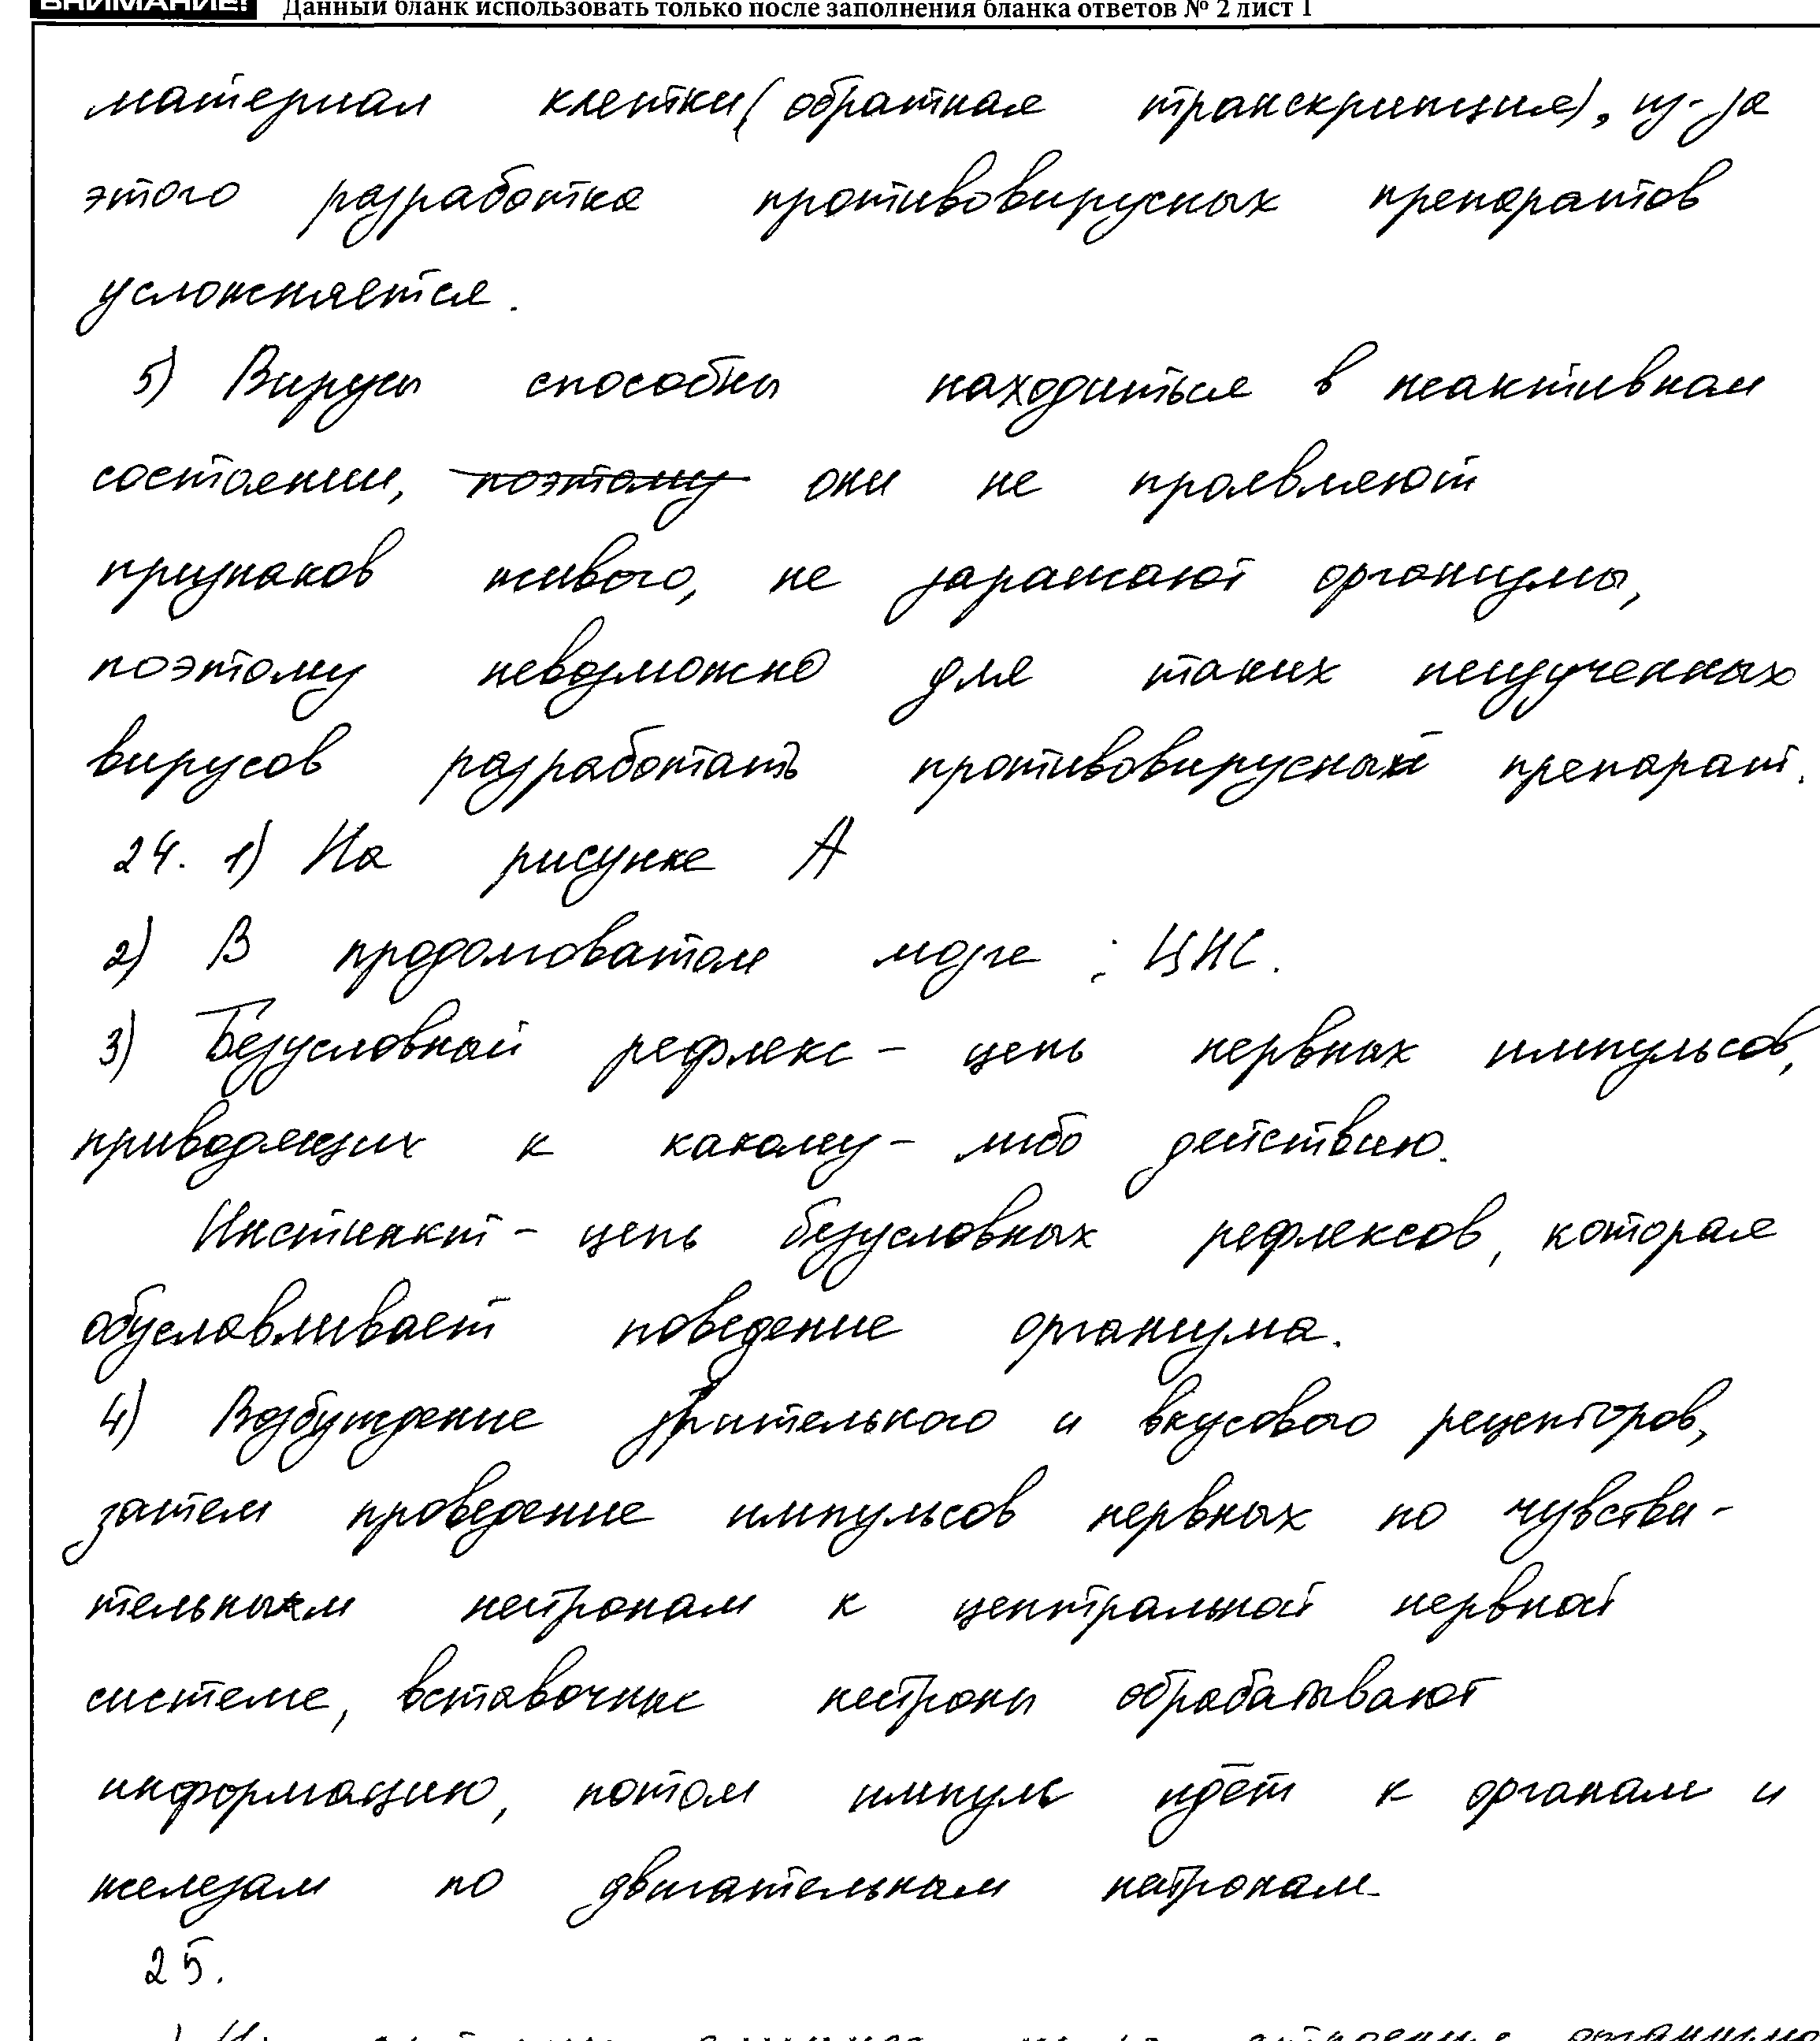 ВНИМАНИЕ! Данный бланк использовать только после заполнения бланка ответов № 2 лист 1
материал клетки (обратная транскрипция), из-за
этого разработка противовирусных препаратов
усложняется.
5) Вирусы способны находиться в неактивном
состоянии, поэтому они не проявляют
признаков живого, не заражают организмы,
поэтому невозможно для таких неизученных
вирусов разработать противовирусный препарат.
24. 1) На рисунке А
2) В продолговатом мозге; ЦНС.
3) Безусловный рефлекс – цепь нервных импульсов,
приводящих к какому-либо действию.
Инстинкт – цепь безусловных рефлексов, которая
обуславливает поведение организма.
4) Возбуждение зрительного и вкусового рецепторов,
затем проведение импульсов нервных по чувстви-
тельным нейронам к центральной нервной
системе, вставочные нейроны обрабатывают
информацию, потом импульс идёт к органам и
железам по двигательным нейронам.
25.